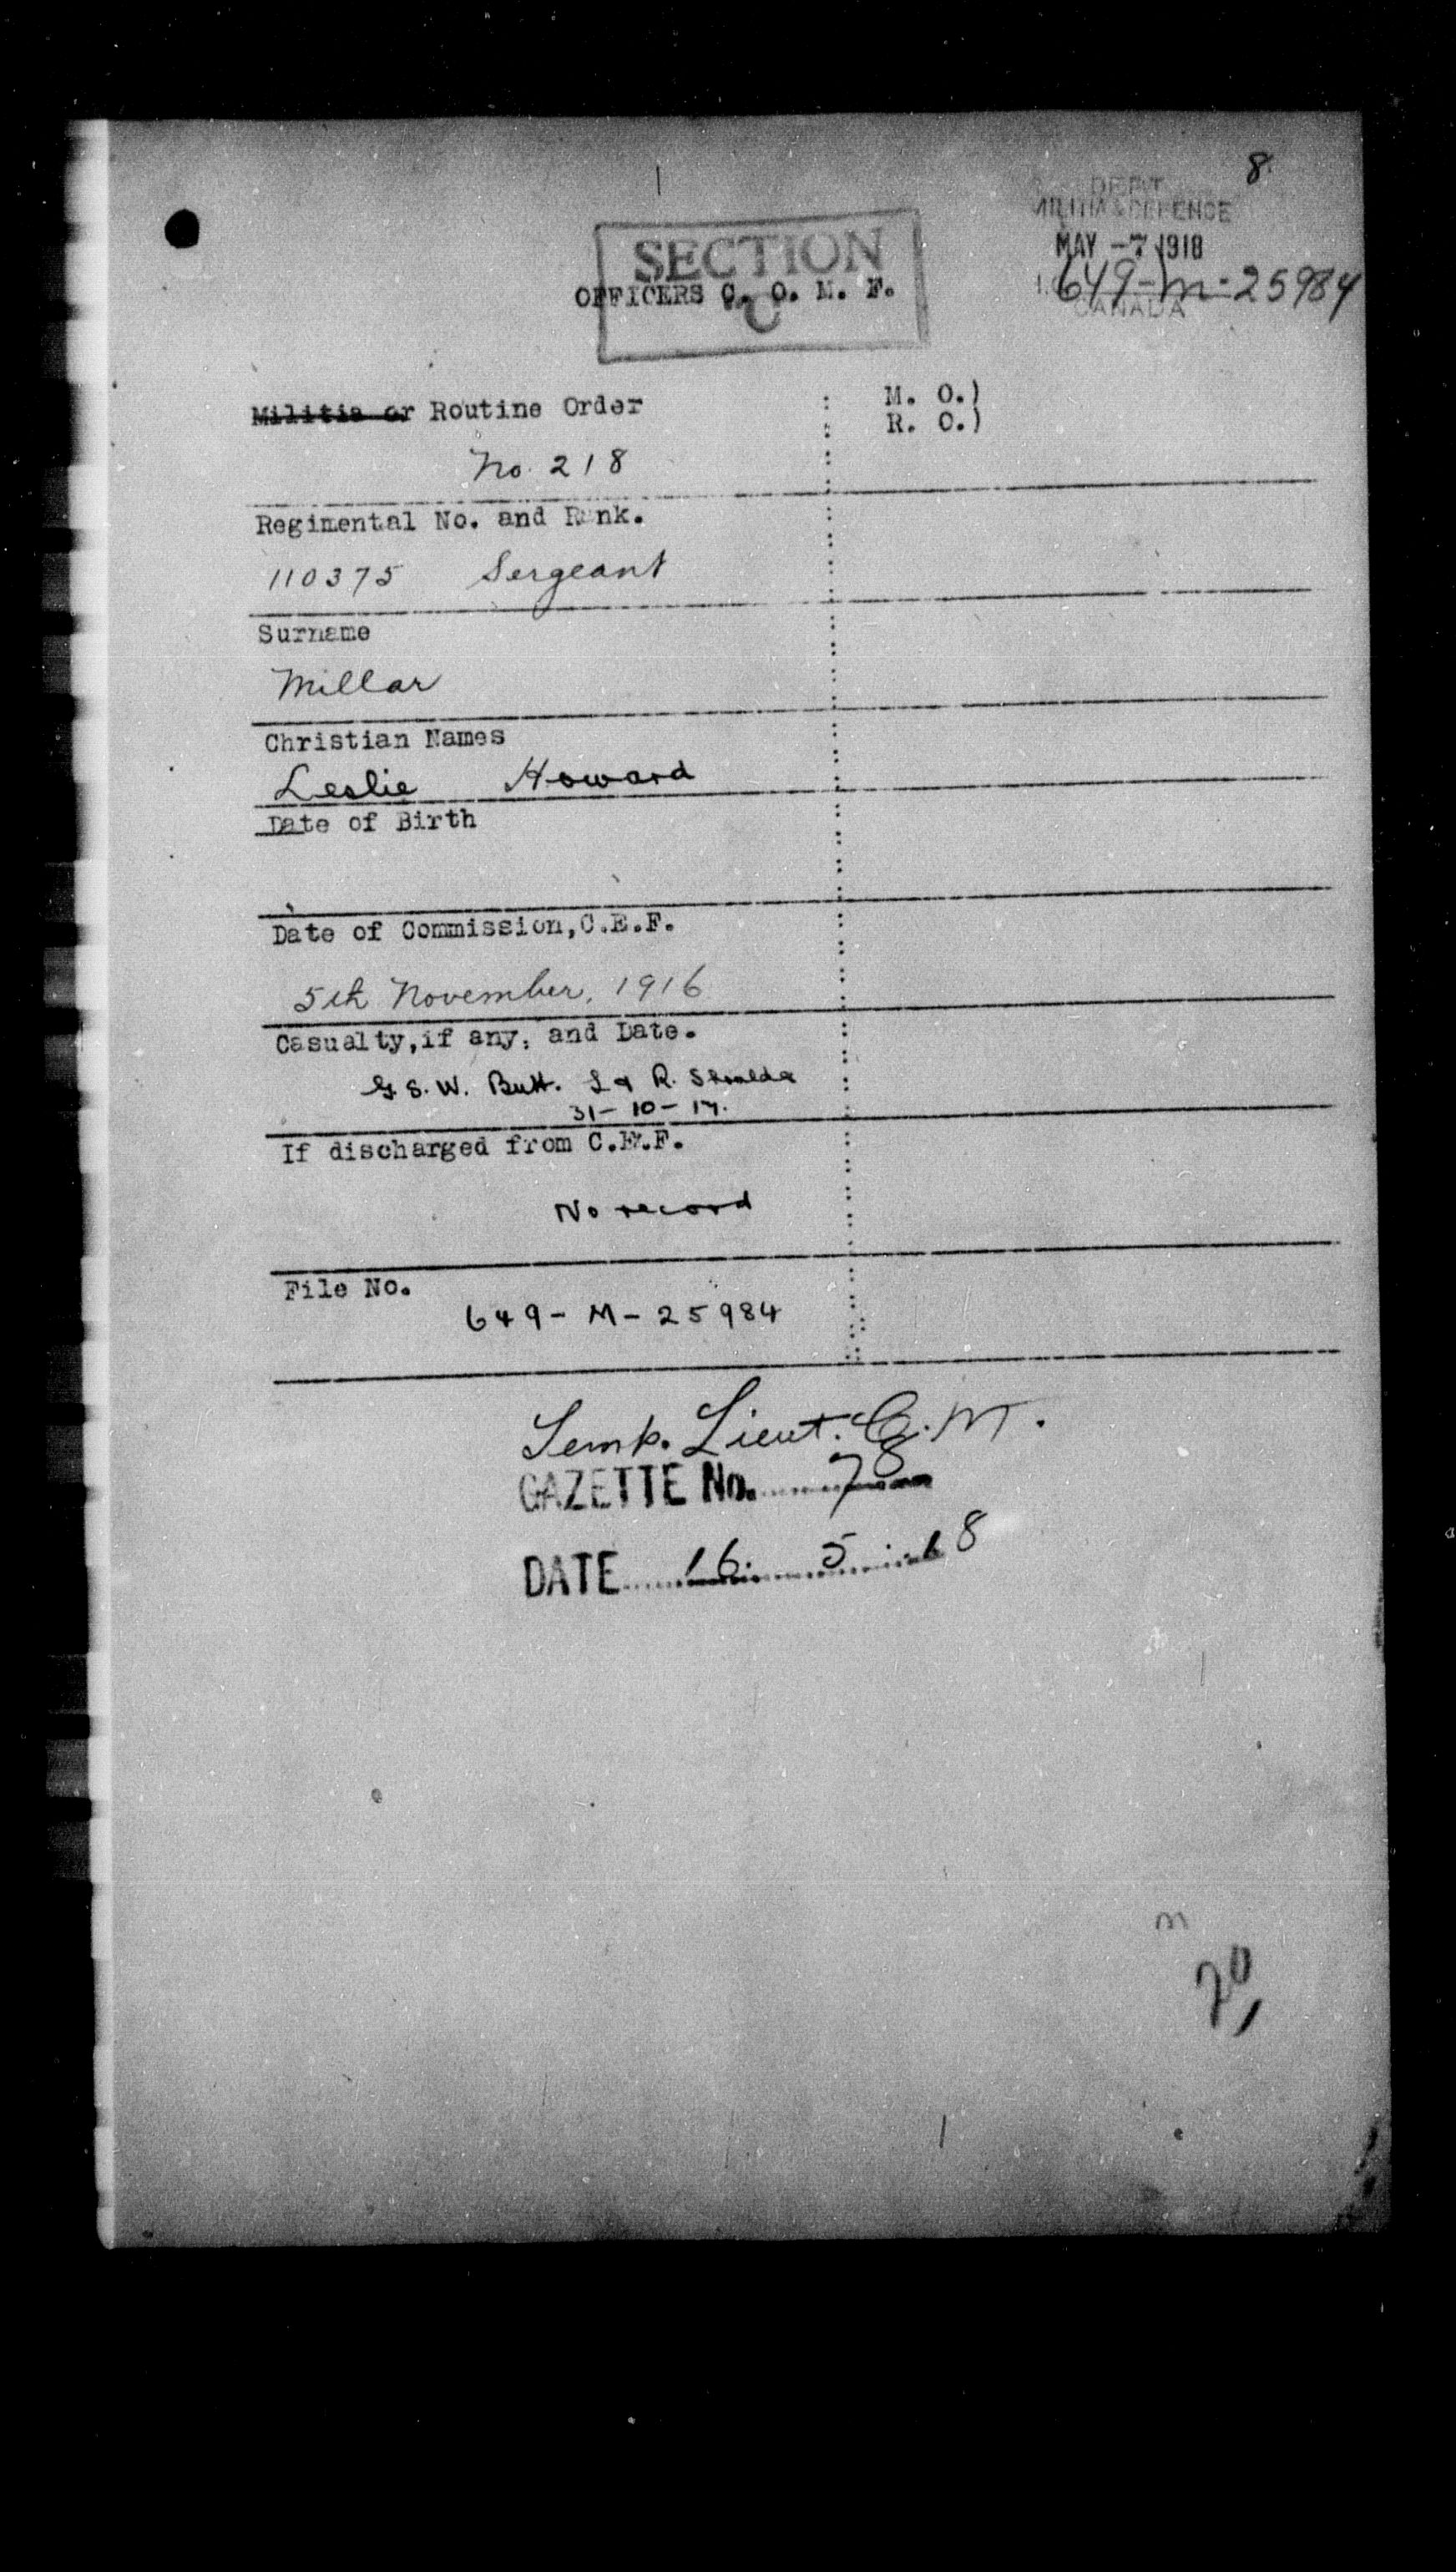 8.
DEPT.
MILITIA & DEFENCE
MAY -7 1918
649-M-25984
CANADA
SECTION
OFFICERS C. O. M. F.
C
Militia or Routine Order
M. O.)
R. O.)
No. 218
Regimental No. and Rank.
110375 Sergeant
Surname
Millar
Christian Names
Leslie Howard
Date of Birth
Date of Commission, C.E.F.
5th November, 1916
Casualty, if any, and Date.
G. S. W. Butt. L & R. Shoulder
31-10-17.
If discharged from C.E.F.
No record
File No.
649-M-25984
Temp. Lieut. C. M.
GAZETTE No. 78
DATE 16. 5. 18
m
20